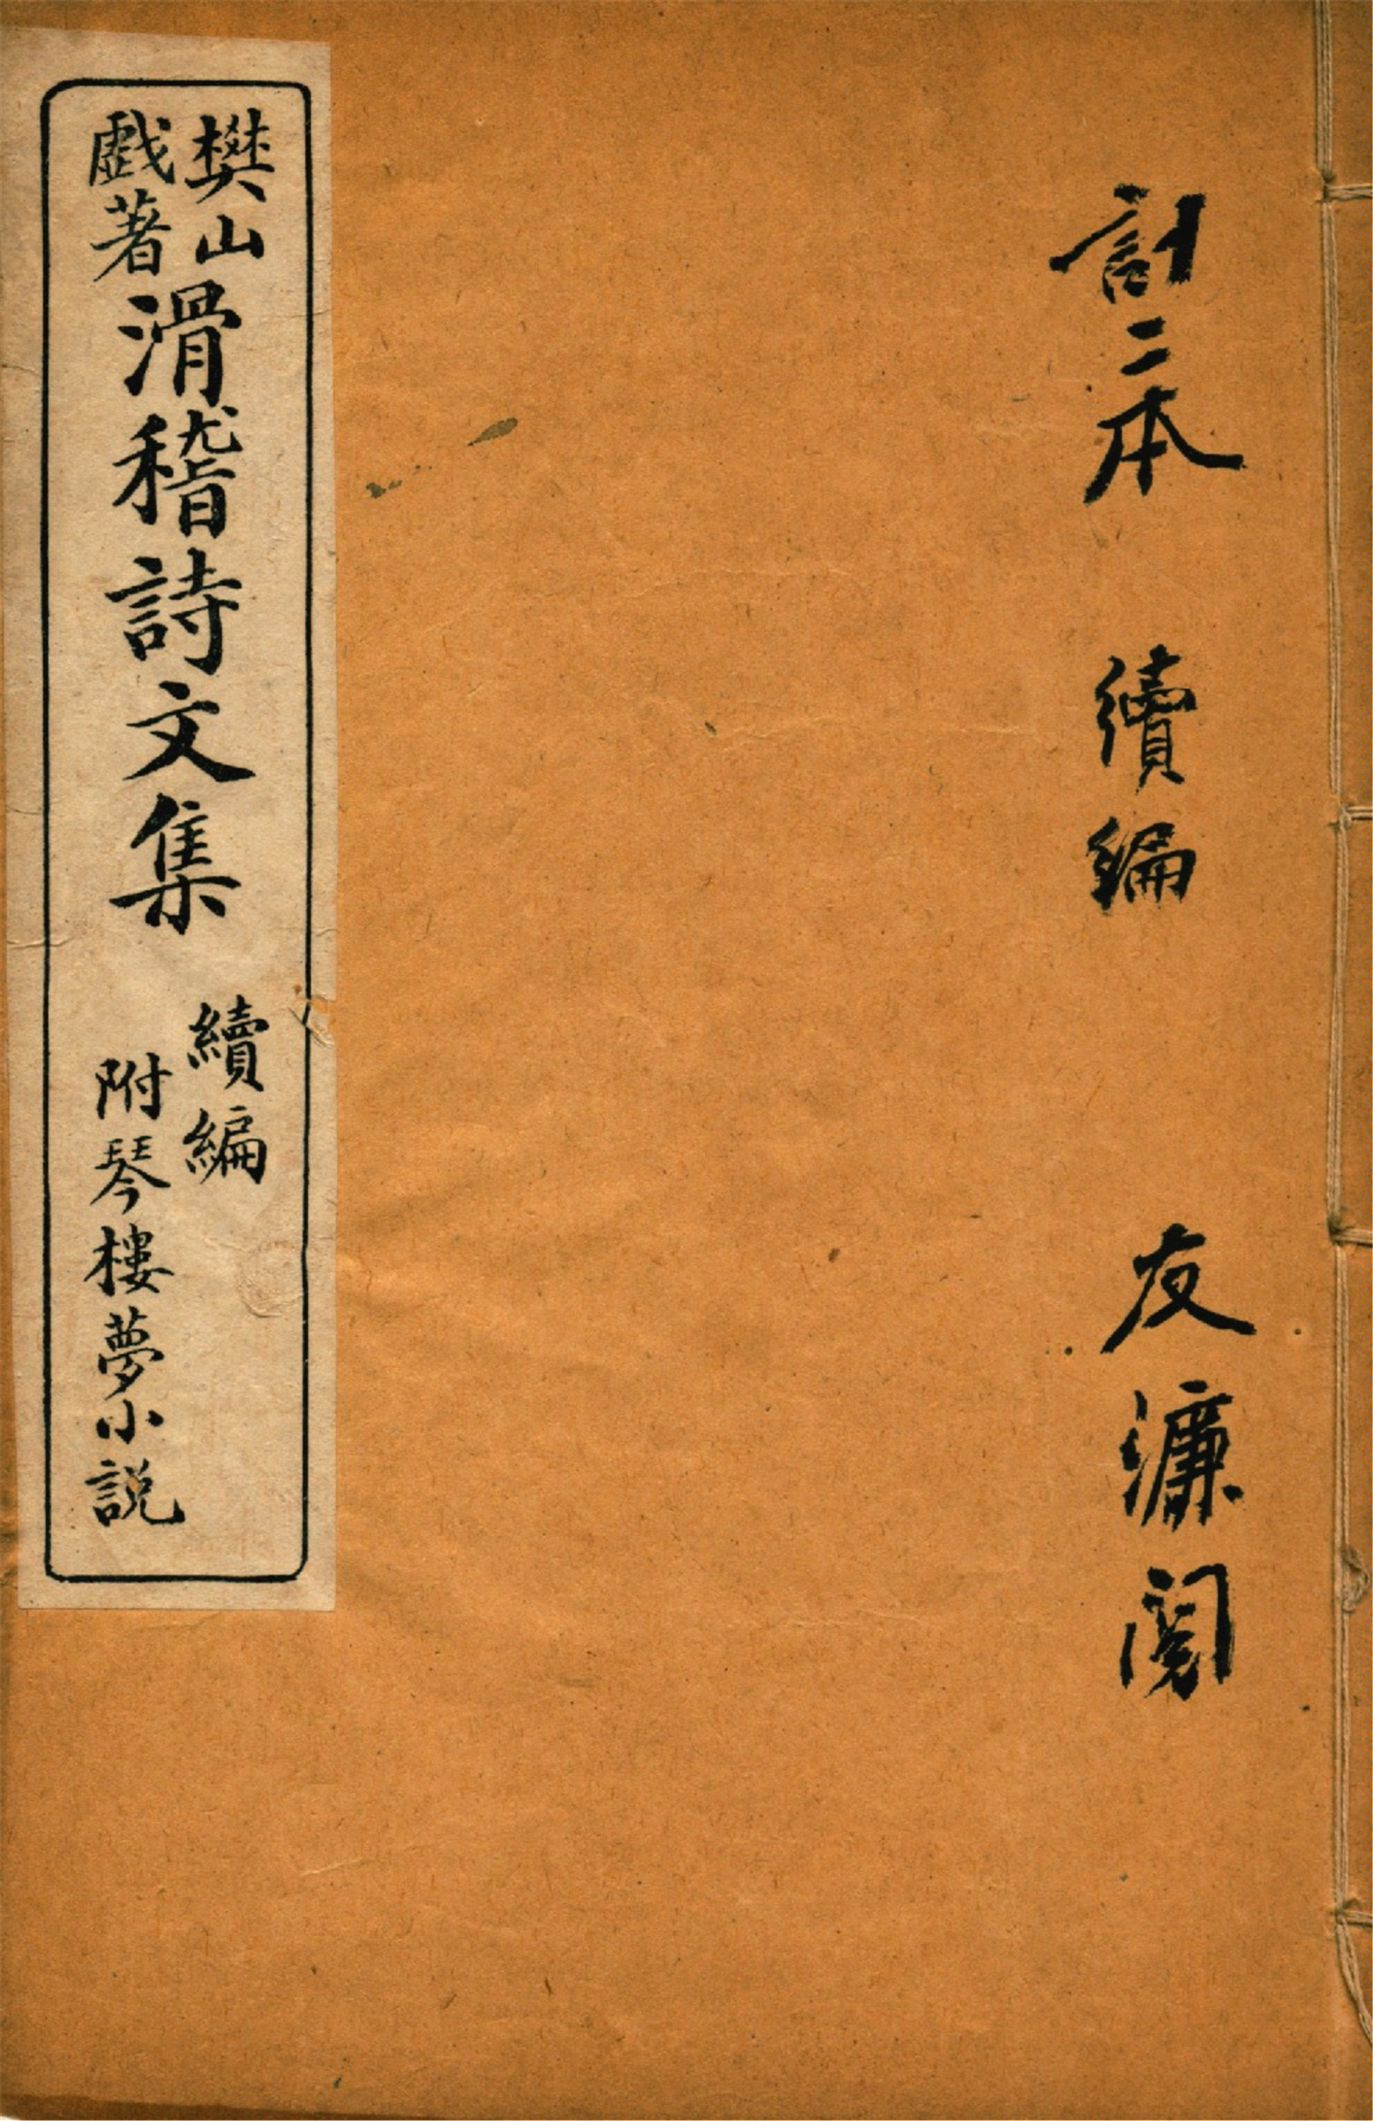 計二本 續編 友濂閱
樊山
戲著
滑稽詩文集
續編
附琴樓夢小説